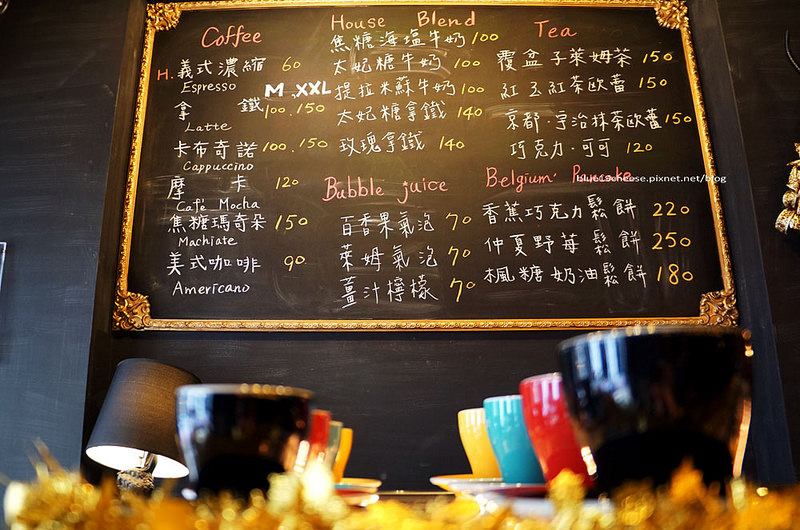 Coffee
H. 義式濃縮 60
Espresso
M XXL
拿鐵 100.150
Latte
卡布奇諾 100.150
Cappuccino
摩卡 120
Café Mocha
焦糖瑪奇朵 150
Machiate
美式咖啡 90
Americano
House Blend
焦糖海塩牛奶 100
太妃糖牛奶 100
提拉米蘇牛奶 100
太妃糖拿鐵 140
玫瑰拿鐵 140
Bubble juice
百香果氣泡 70
萊姆氣泡 70
薑汁檸檬 70
Tea
覆盆子萊姆茶 150
紅玉紅茶歐蕾 150
京都·宇治抹茶歐蕾 150
巧克力·可可 120
Belgium Pancake
blue1ooheose.pixnet.net/blog
香蕉巧克力鬆餅 220
仲夏野莓鬆餅 250
楓糖奶油鬆餅 180